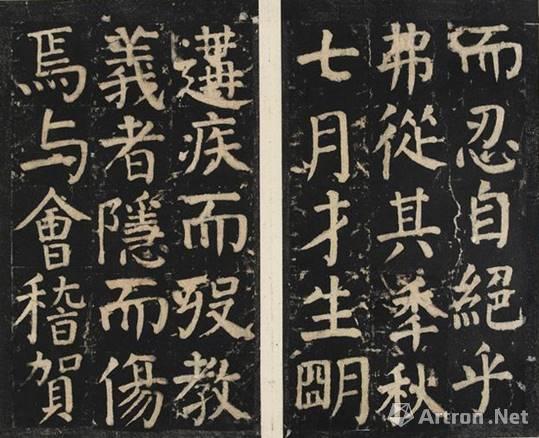 而忍自絕乎
弗從其秊秋
七月才生朙
遘疾而歿教
義者隱而傷
焉与會稽賀
Artron.Net